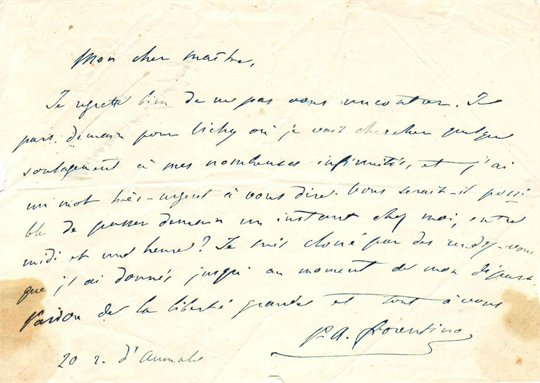 Mon cher maître,
Je regrette bien de ne pas vous rencontrer. Je
pars demain pour Vichy où je vais chercher quelque
soulagement à mes nombreuses infirmités, et j'ai
un mot très-urgent à vous dire. Vous serait-il possi-
ble de passer demain un instant chez moi, entre
midi et une heure? Je suis cloué par des rendez-vous
que j'ai donnés jusqu'au moment de mon départ.
Pardon de la liberté grande et tout à vous
P. A. Fiorentino
20 r. d'Aumale